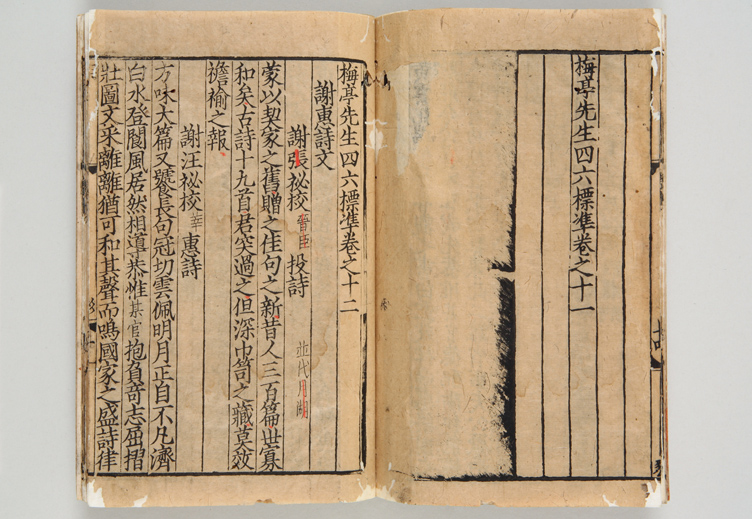 梅亭先生四六標準卷之十一
梅亭先生四六標準卷之十二
謝惠詩文
謝張祕校晉臣投詩
並代月湖
蒙以契家之舊贈之佳句之新昔人三百篇世寡
和矣古詩十九首君突過之但深巾笥之藏莫效
襜褕之報
謝汪祕校莘惠詩
方咏大篇又饕長句冠切雲佩明月正自不凡濟
白水登閬風居然相導恭惟某官抱負奇志屈摺
壯圖文采離離猶可和其聲而鳴國家之盛詩律